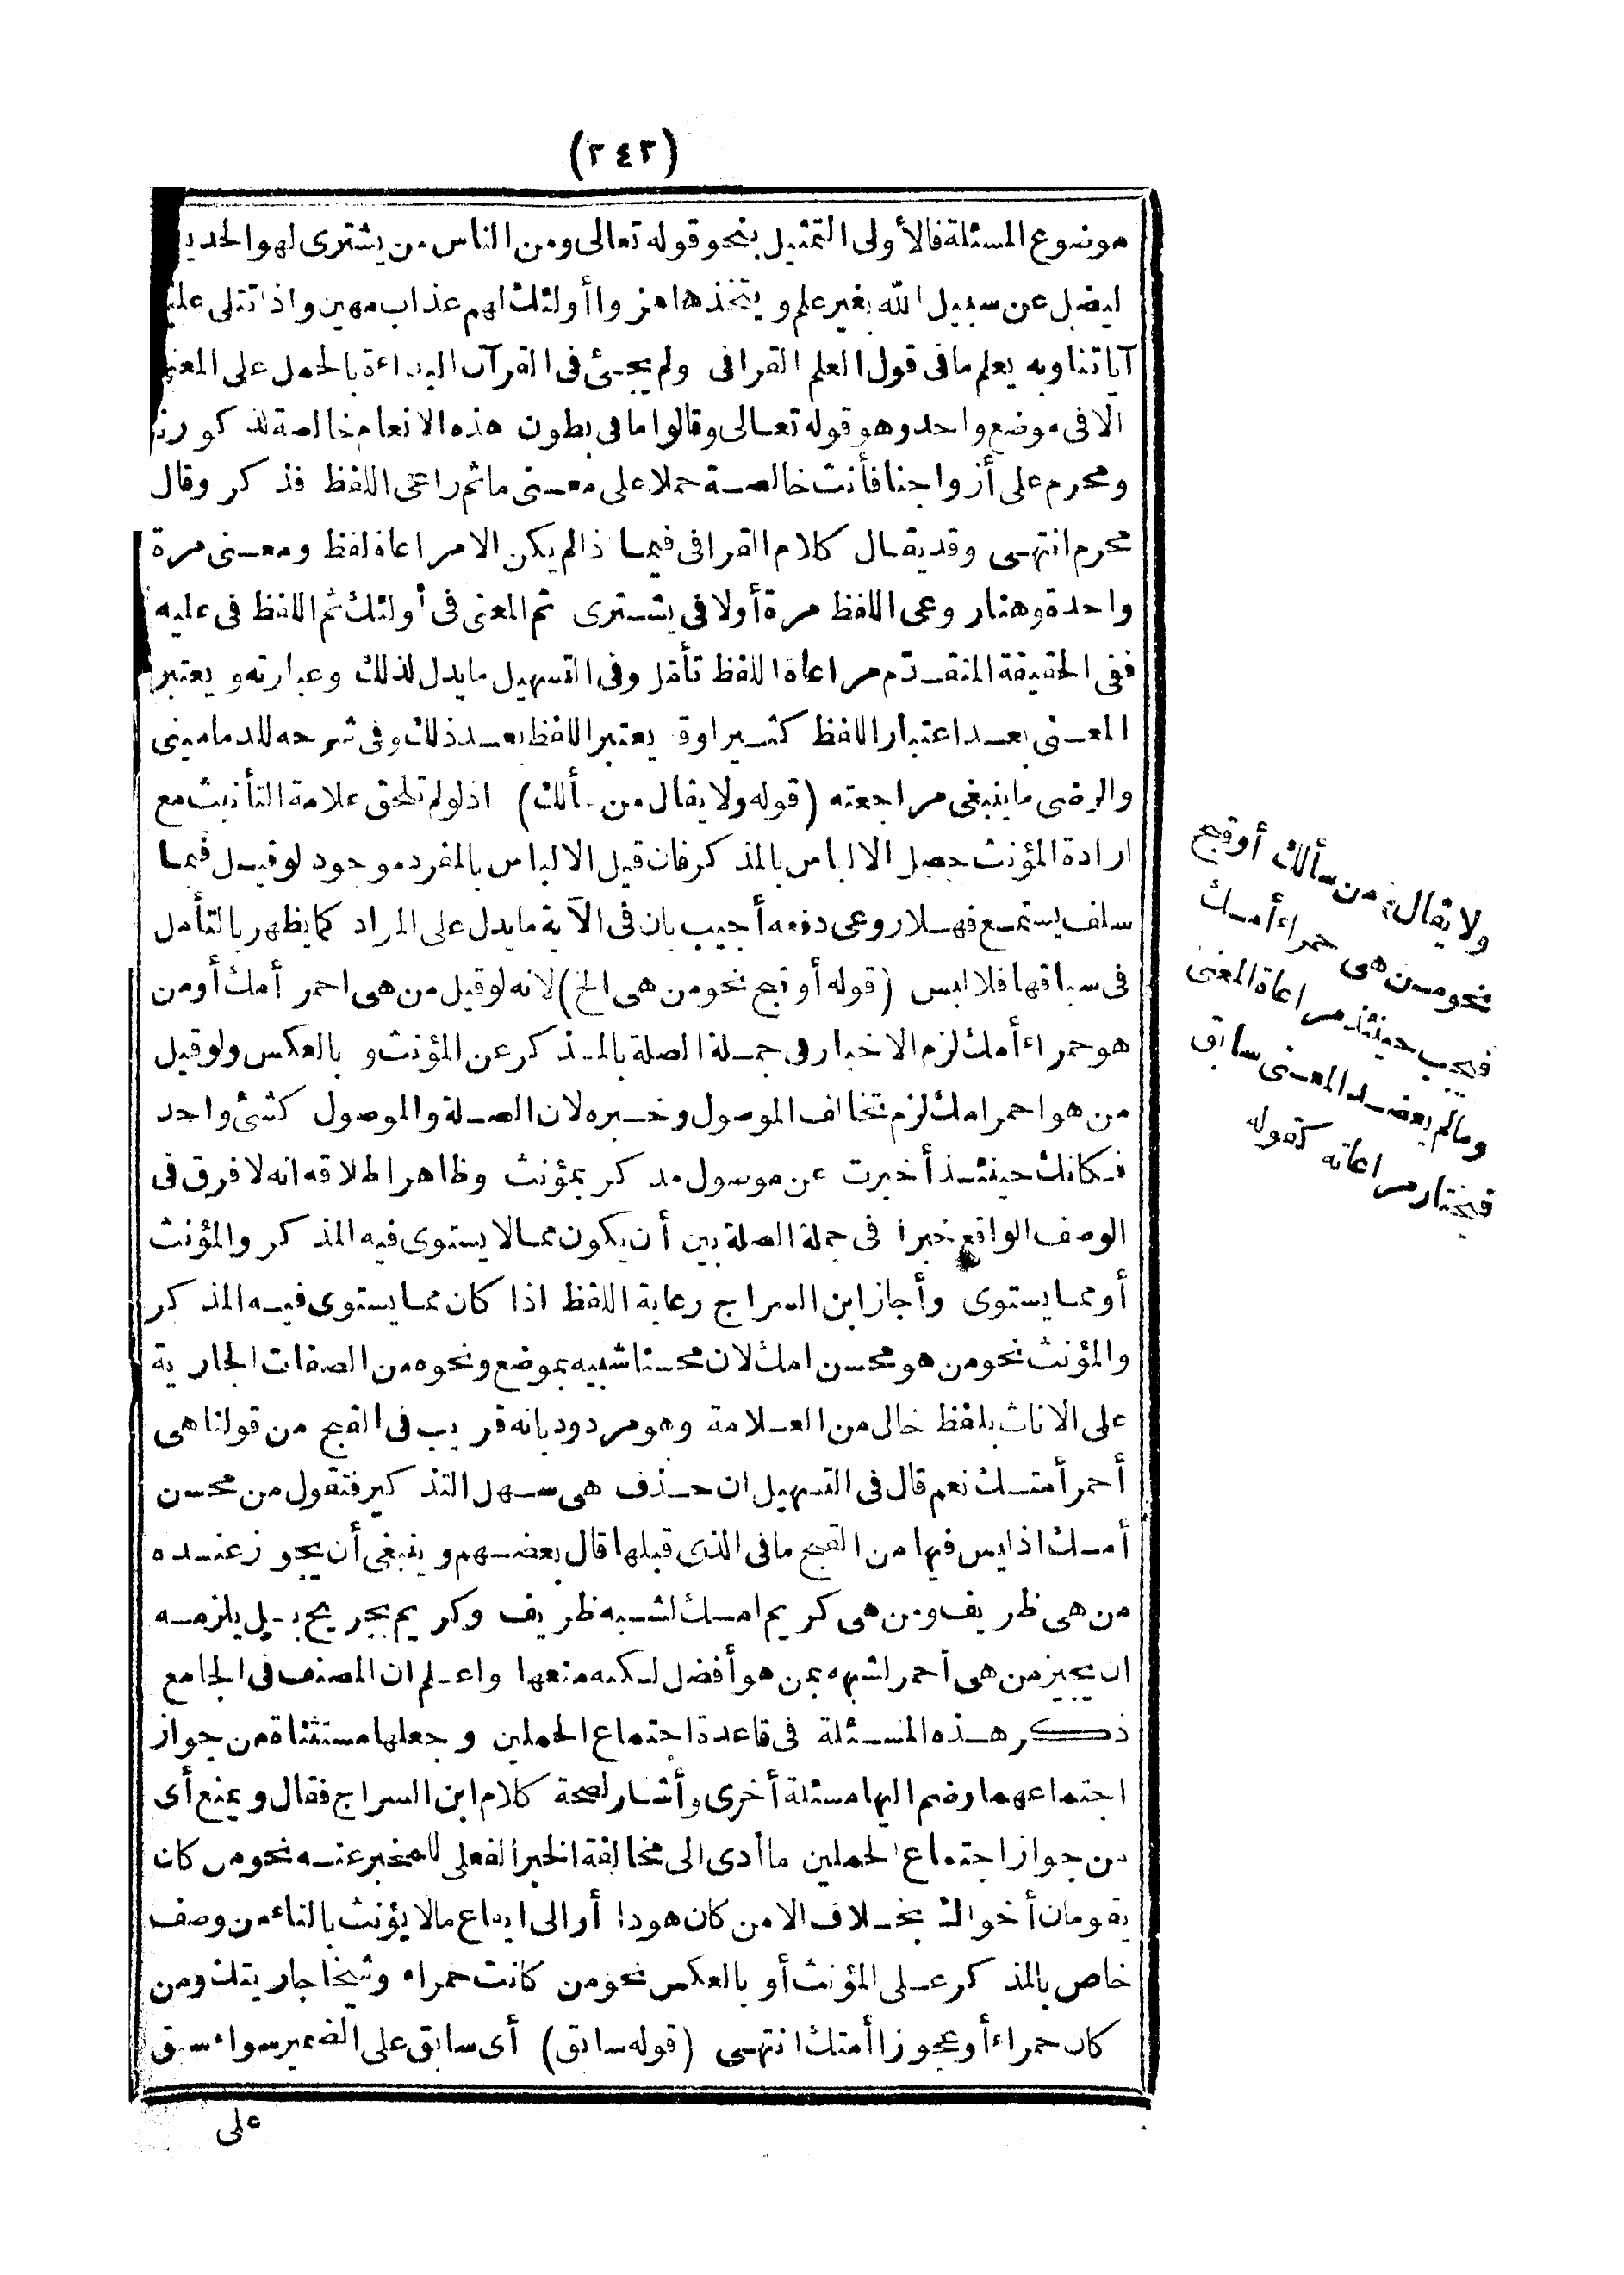 (٢٤٢)
موضوع المسئلة فالأولى التمثيل بنحو قوله تعالى ومن الناس من يشترى لهو الحديث
ليضل عن سبيل الله بغير علم ويتخذها هزوا أولئك لهم عذاب مهين واذا تتلى عليه
آياتنا وبه يعلم ما فى قول العلم القرافى ولم يجئ فى القرآن البداءة بالحمل على المعنى
الا فى موضع واحد وهو قوله تعالى وقالوا ما فى بطون هذه الانعام خالصة لذكورنا
ومحرم على أزواجنا فأنث خالصة حملا على معنى ما ثم راعى اللفظ فذكر وقال
محرم انتهى وقد يقال كلام القرافى فيما اذا لم يكن الا مراعاة لفظ ومعنى مرة
واحدة وهنا روعى اللفظ مرة أولا فى يشترى ثم المعنى فى أولئك ثم اللفظ فى عليه
ففى الحقيقة المتقدّم مراعاة اللفظ تأمّل وفى التسهيل ما يدل لذلك وعبارته ويعتبر
المعنى بعد اعتبار اللفظ كثيرا وقد يعتبر اللفظ بعد ذلك وفى شرحه للدمامينى
والرضى ما ينبغى مراجعته (قوله ولا يقال من سألك) اذ لو لم تلحق علامة التأنيث مع
ارادة المؤنث حصل الالباس بالمذكر فان قيل الالباس بالمفرد موجود لو قيل فيما
سلف يستمع فهلا روعى دفعه أجيب بان فى الآية ما يدل على المراد كما يظهر بالتأمل
فى سياقها فلا لبس (قوله أو قبح نحو من هى الخ) لانه لو قيل من هى احمر أمك أو من
هو حمراء أمك لزم الاخبار فى جملة الصلة بالمذكر عن المؤنث و بالعكس ولو قيل
من هو احمر امك لزم تخالف الموصول وخبره لان الصلة والموصول كشئ واحد
فكانك حينئذ أخبرت عن موصول مذكر بمؤنث وظاهر اطلاقه انه لا فرق فى
الوصف الواقع خبرا فى جملة الصلة بين أن يكون مما لا يستوى فيه المذكر والمؤنث
أو مما يستوى وأجاز ابن السراج رعاية اللفظ اذا كان مما يستوى فيه المذكر
والمؤنث نحو من هو محسن امك لان محسنا شبيه بموضع ونحوه من الصفات الجارية
على الاناث بلفظ خال من العلامة وهو مردود بانه قريب فى القبح من قولنا هى
أحمر أمتك نعم قال فى التسهيل ان حذف هى سهل التذكير فتقول من محسن
أمك اذ ليس فيها من القبح ما فى الذى قبلها قال بعضهم وينبغى أن يجوز عنده
من هى ظريف ومن هى كريم امك لشبه ظريف وكريم بجريح بل يلزمه
ان يجيز من هى أحمر لشبهه بمن هو أفضل لكنه منعها واعلم ان المصنف فى الجامع
ذكر هذه المسئلة فى قاعدة اجتماع الحملين وجعلها مستثناة من جواز
اجتماعهما وضم اليها مسئلة أخرى وأشار لصحة كلام ابن السراج فقال ويمنع أى
من جواز اجتماع الحملين ما أدى الى مخالفة الخبر الفعلى للمخبر عنه نحو من كان
يقومان أخواك بخلاف الا من كان هودا أو الى ايقاع ما لا يؤنث بالتاء من وصف
خاص بالمذكر على المؤنث أو بالعكس نحو من كانت حمراء وشيخا جاريتك ومن
كان حمراء أو عجوزا أمتك انتهى (قوله سابق) أى سابق على الضمير سواء سبق
على
ولا يقال من سألك أو قبح
نحو من هى حمراء أمك
فيجب حينئذ مراعاة المعنى
وما لم يعضد المعنى سابق
فيختار مراعاته كقوله